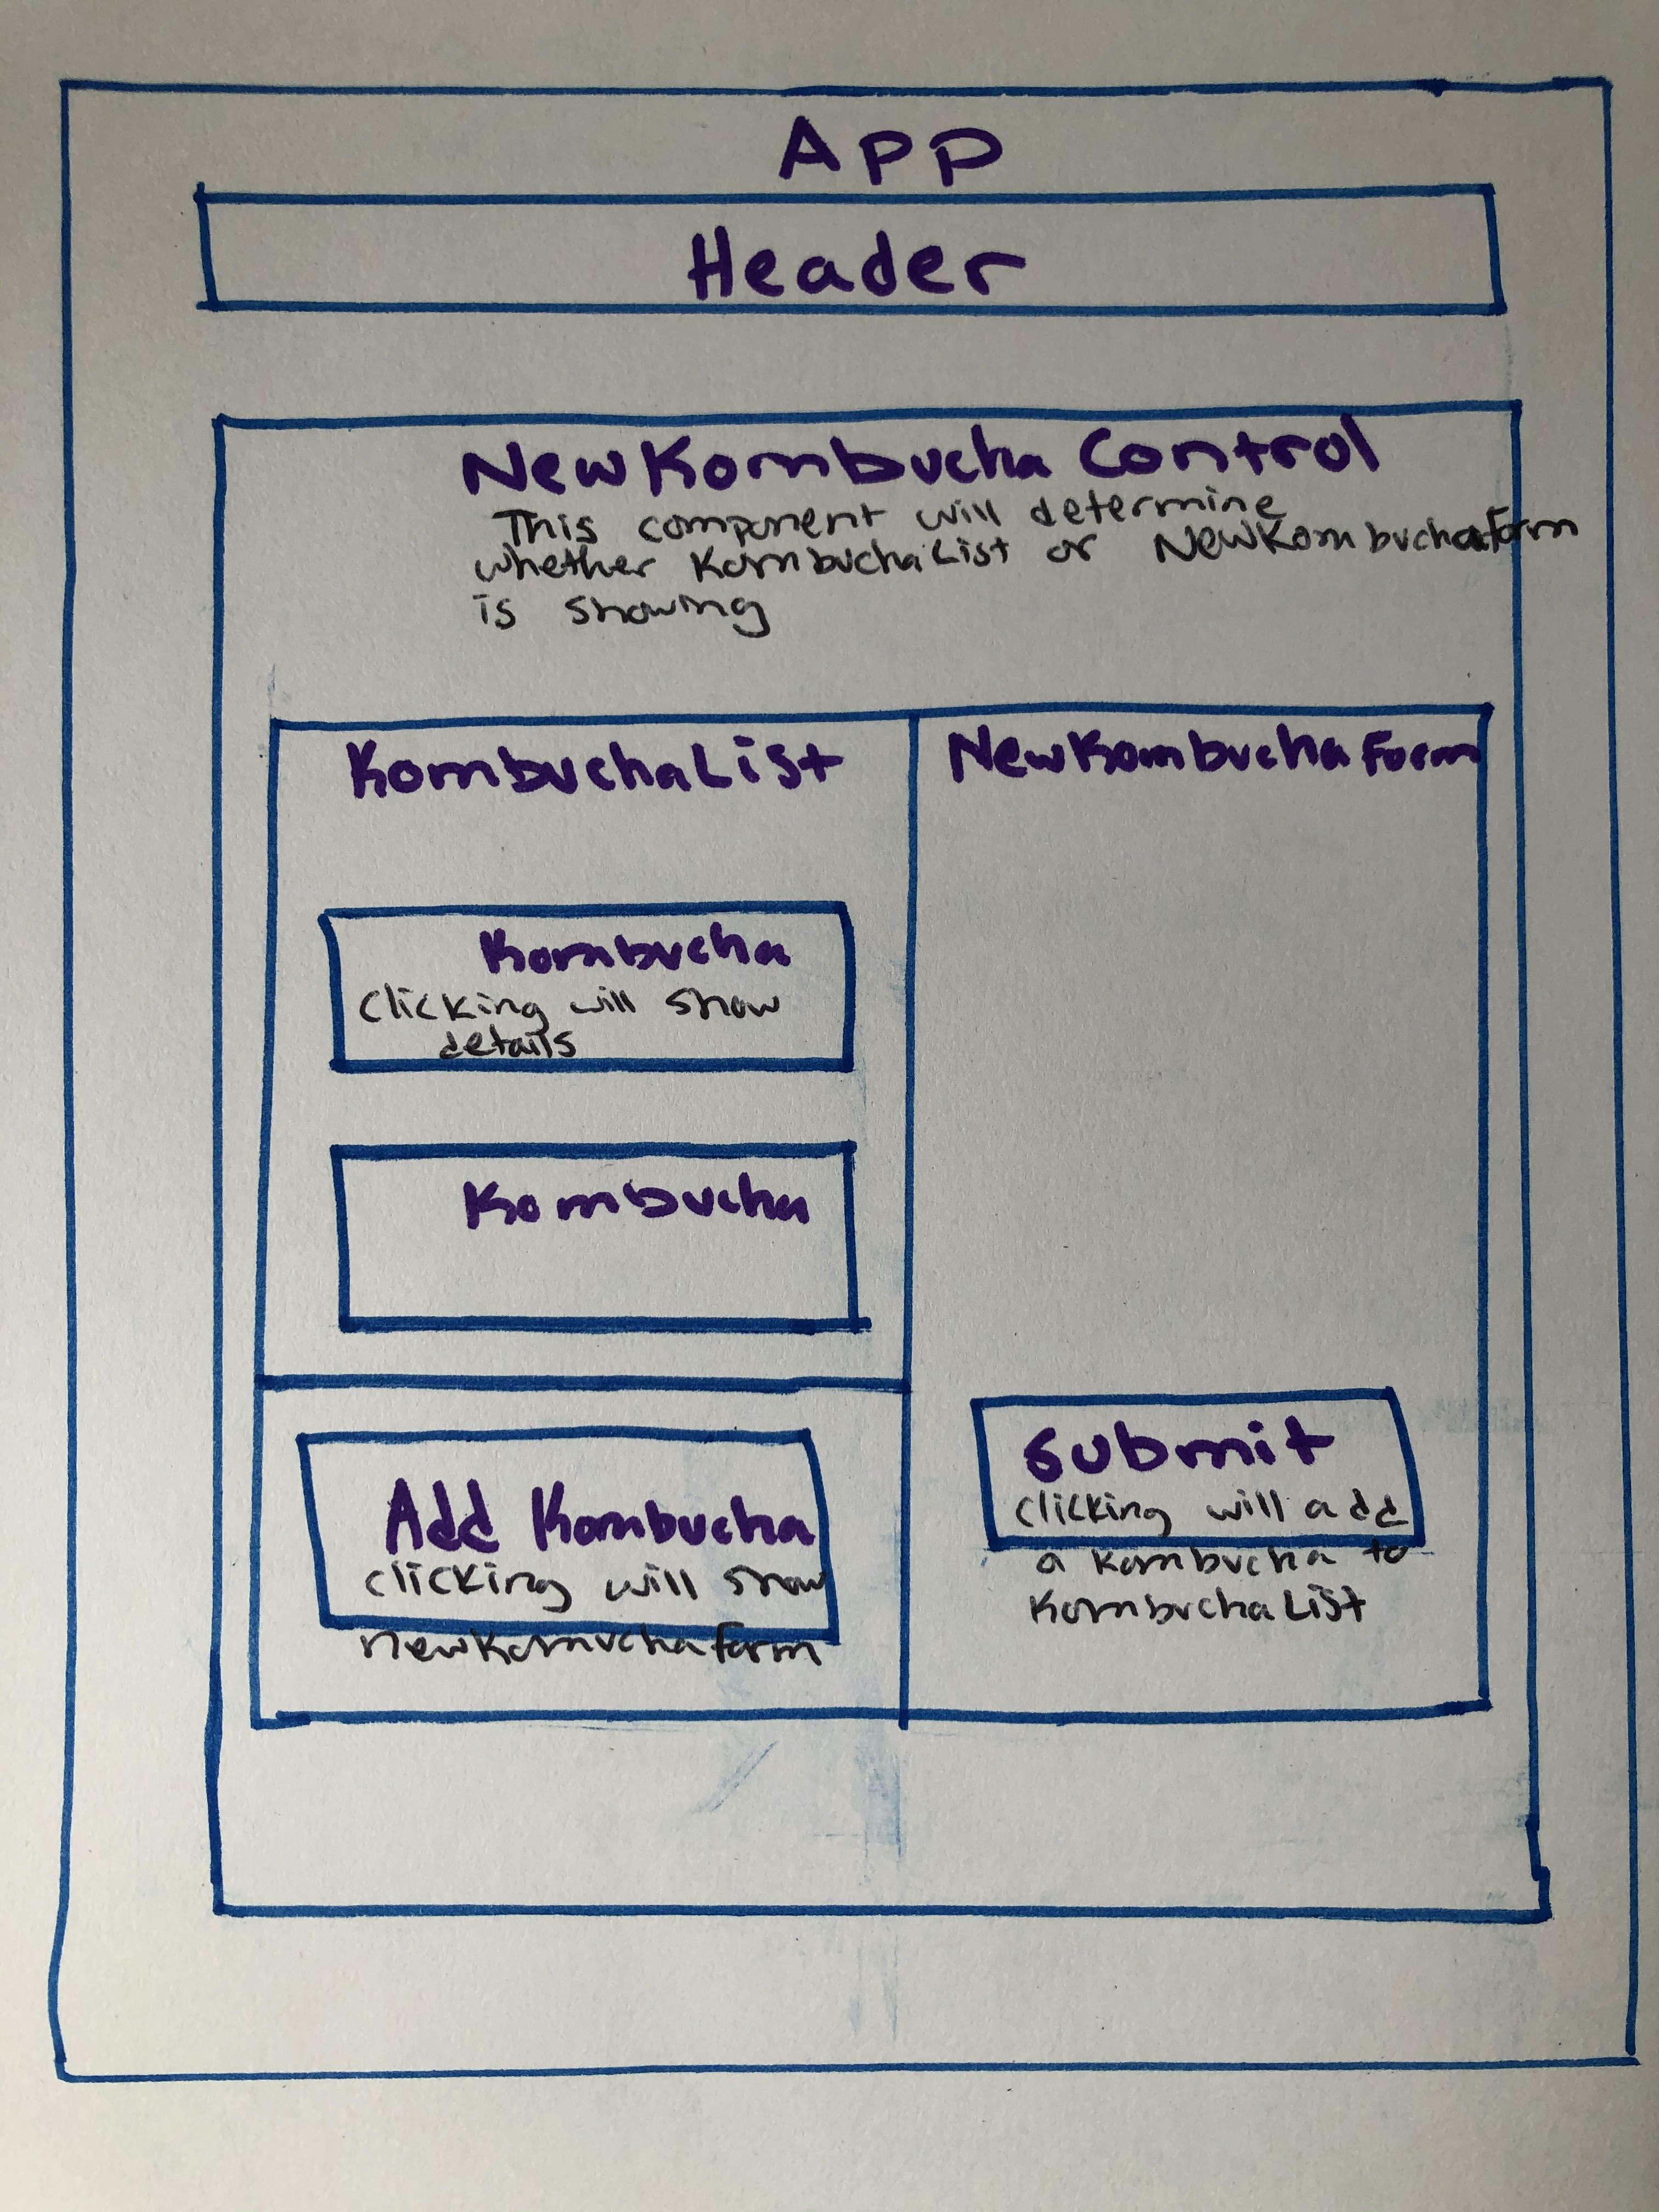 App
Header
NewKombucha Control
This component will determine
whether KombuchaList or NewKombuchaForm
is showing
KombuchaList
NewKombuchaForm
Kombucha
clicking will show
details
Kombucha
Add Kombucha
clicking will show
newKomuchaForm
Submit
clicking will add
a Kombucha to
KombuchaList